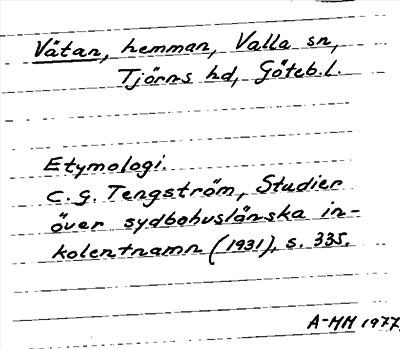 Vätan, hemman, Valla sn,
Tjörns hd, Göteb.l.
Etymologi.
C. G. Tengström, Studier
över sydbohuslänska in-
kolentnamn (1931), s. 335.
A-MM 1977